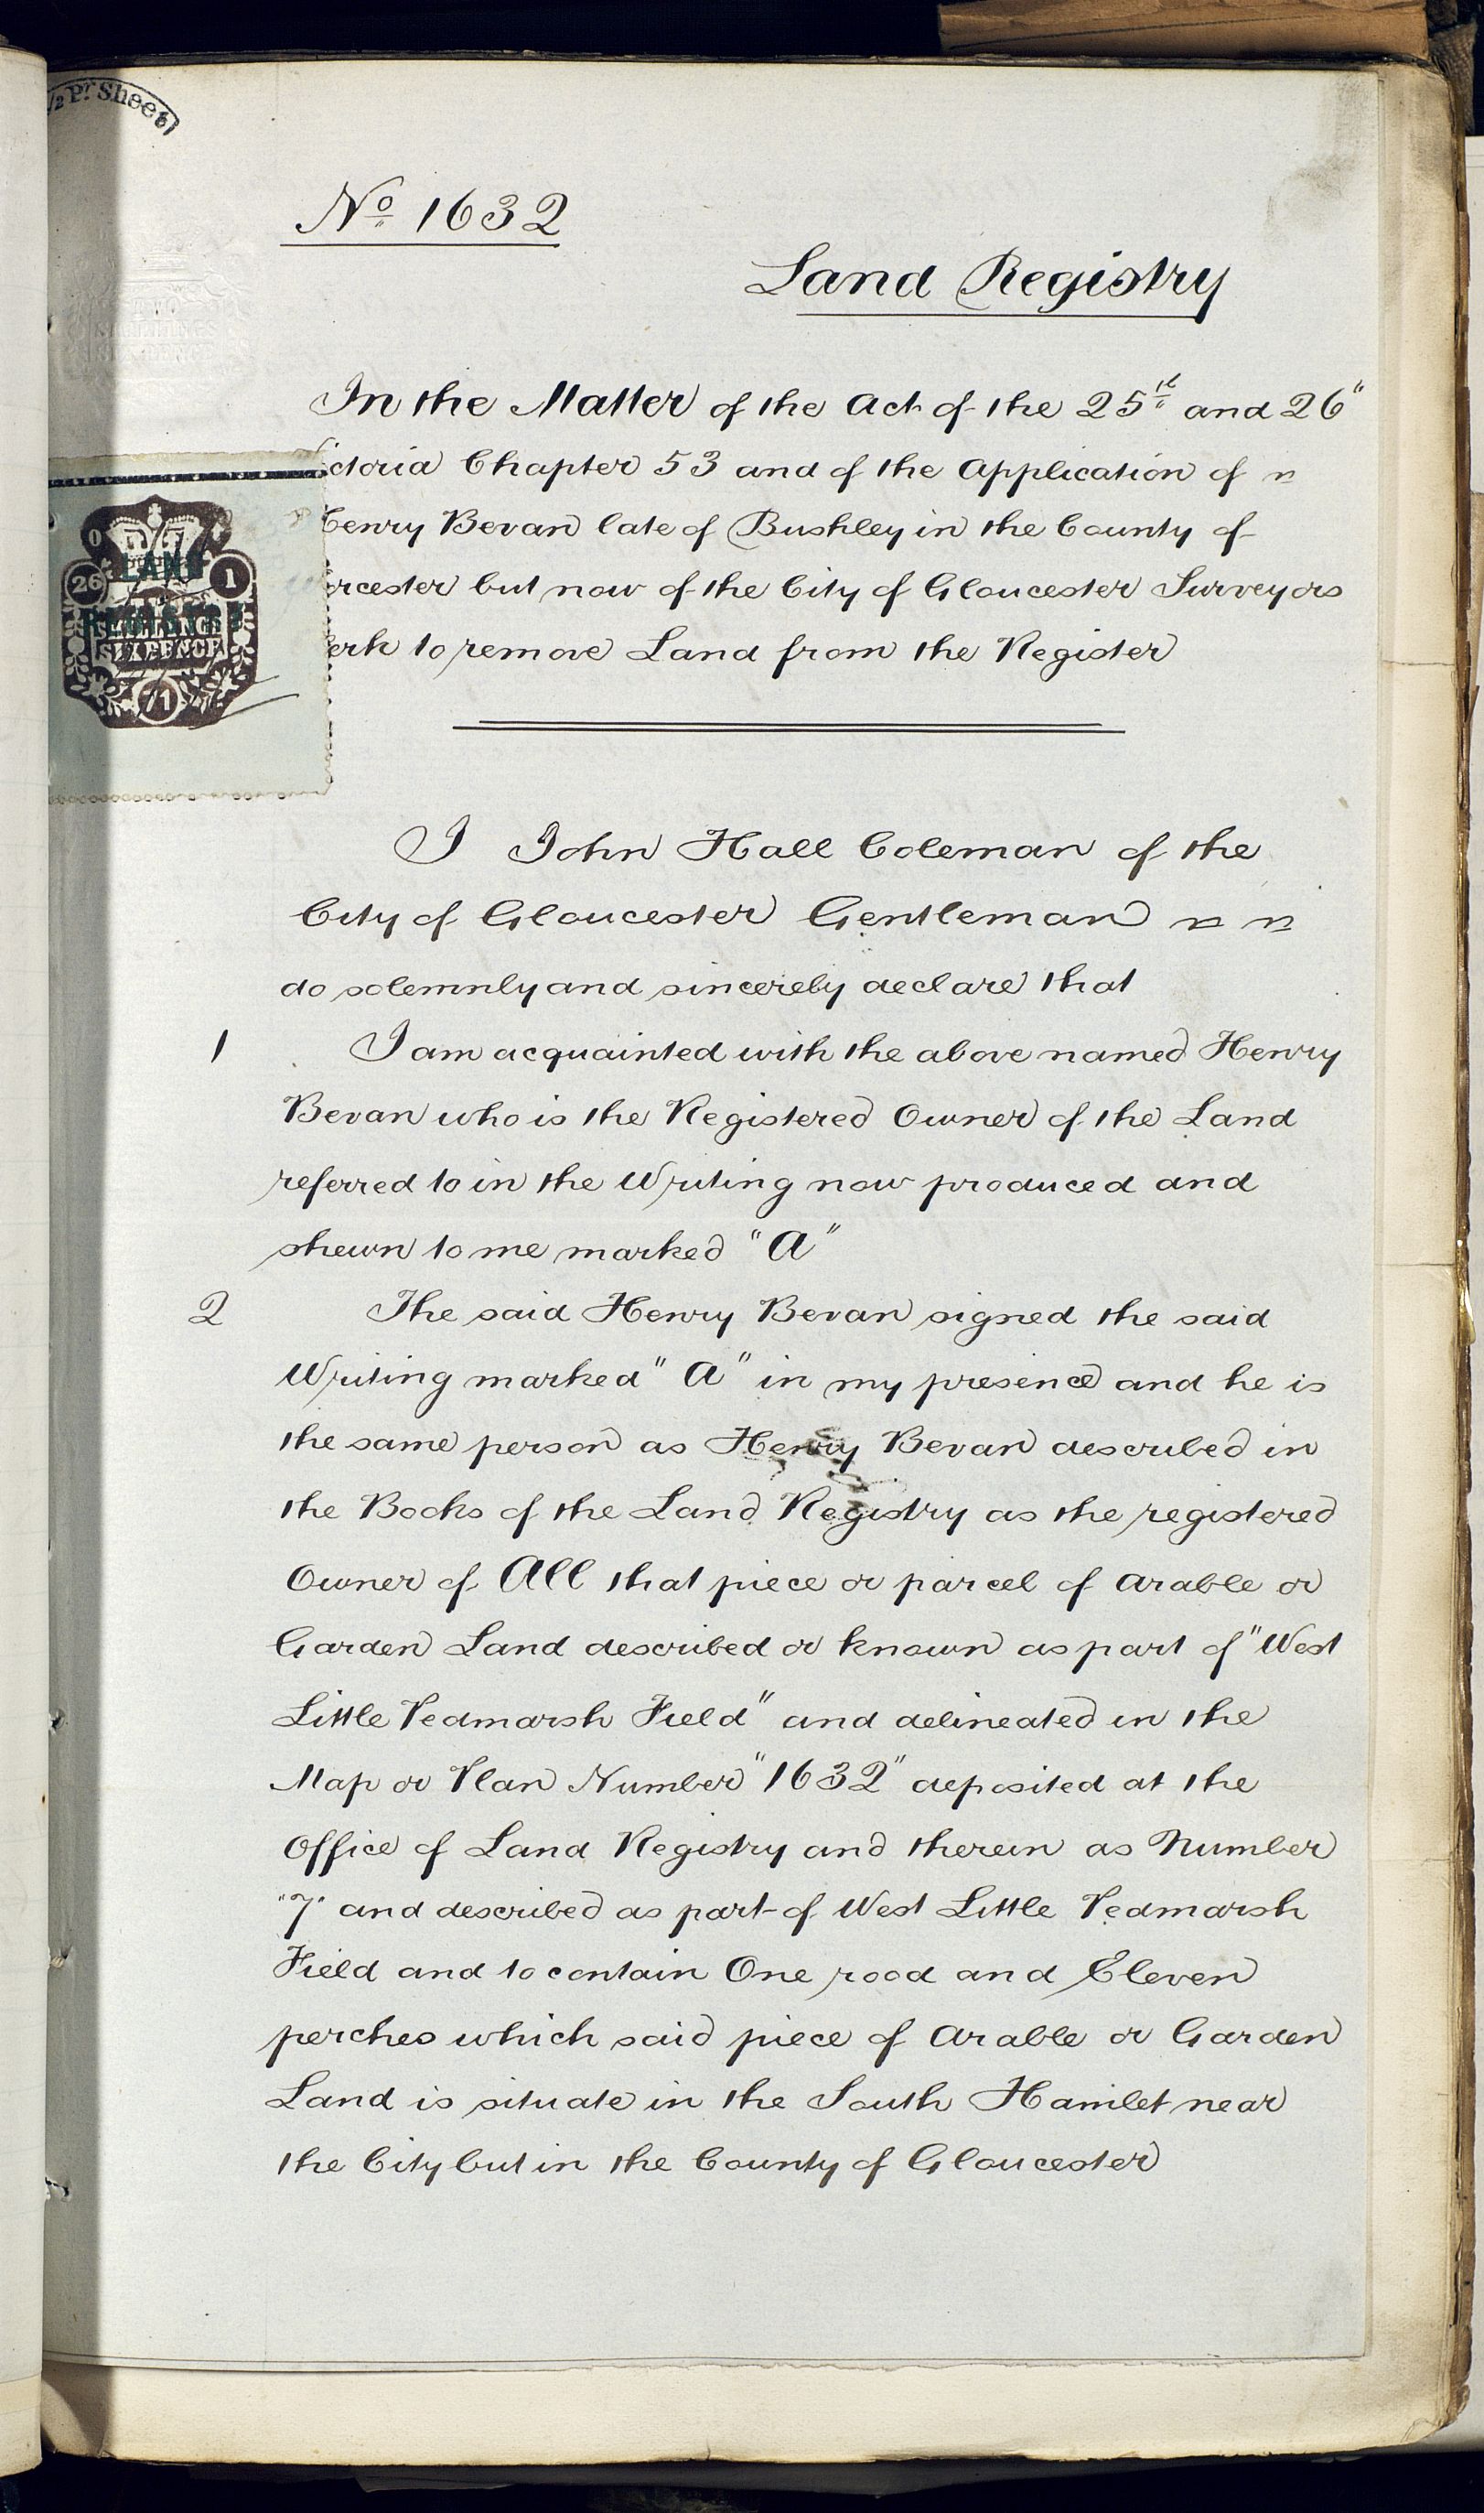 1/2 Pr Sheet
No 1632
Land Registry
In the Matter of the Act of the 25th and 26"
ctoria Chapter 53 and of the Application of
Henry Bevan late of Bushley in the County of
rcester but now of the City of Gloucester Surveyors
erk to remove Land from the Register
26 1
LAND
REGISTRY
SIXPENCE
71
I John Hall Coleman of the
City of Gloucester Gentleman
do solemnly and sincerely declare that
1 I am acquainted with the above named Henry
Bevan who is the Registered Owner of the Land
referred to in the Writing now produced and
shewn to me marked "A"
2 The said Henry Bevan signed the said
Writing marked "A" in my presence and he is
the same person as Henry Bevan described in
the Books of the Land Registry as the registered
Owner of All that piece or parcel of Arable or
Garden Land described or known as part of "West
Little Pedmarsh Field" and delineated in the
Map or Plan Number "1632" deposited at the
Office of Land Registry and therein as Number
"7" and described as part of West Little Pedmarsh
Field and to contain One rood and Eleven
perches which said piece of Arable or Garden
Land is situate in the South Hamlet near
the City but in the County of Gloucester